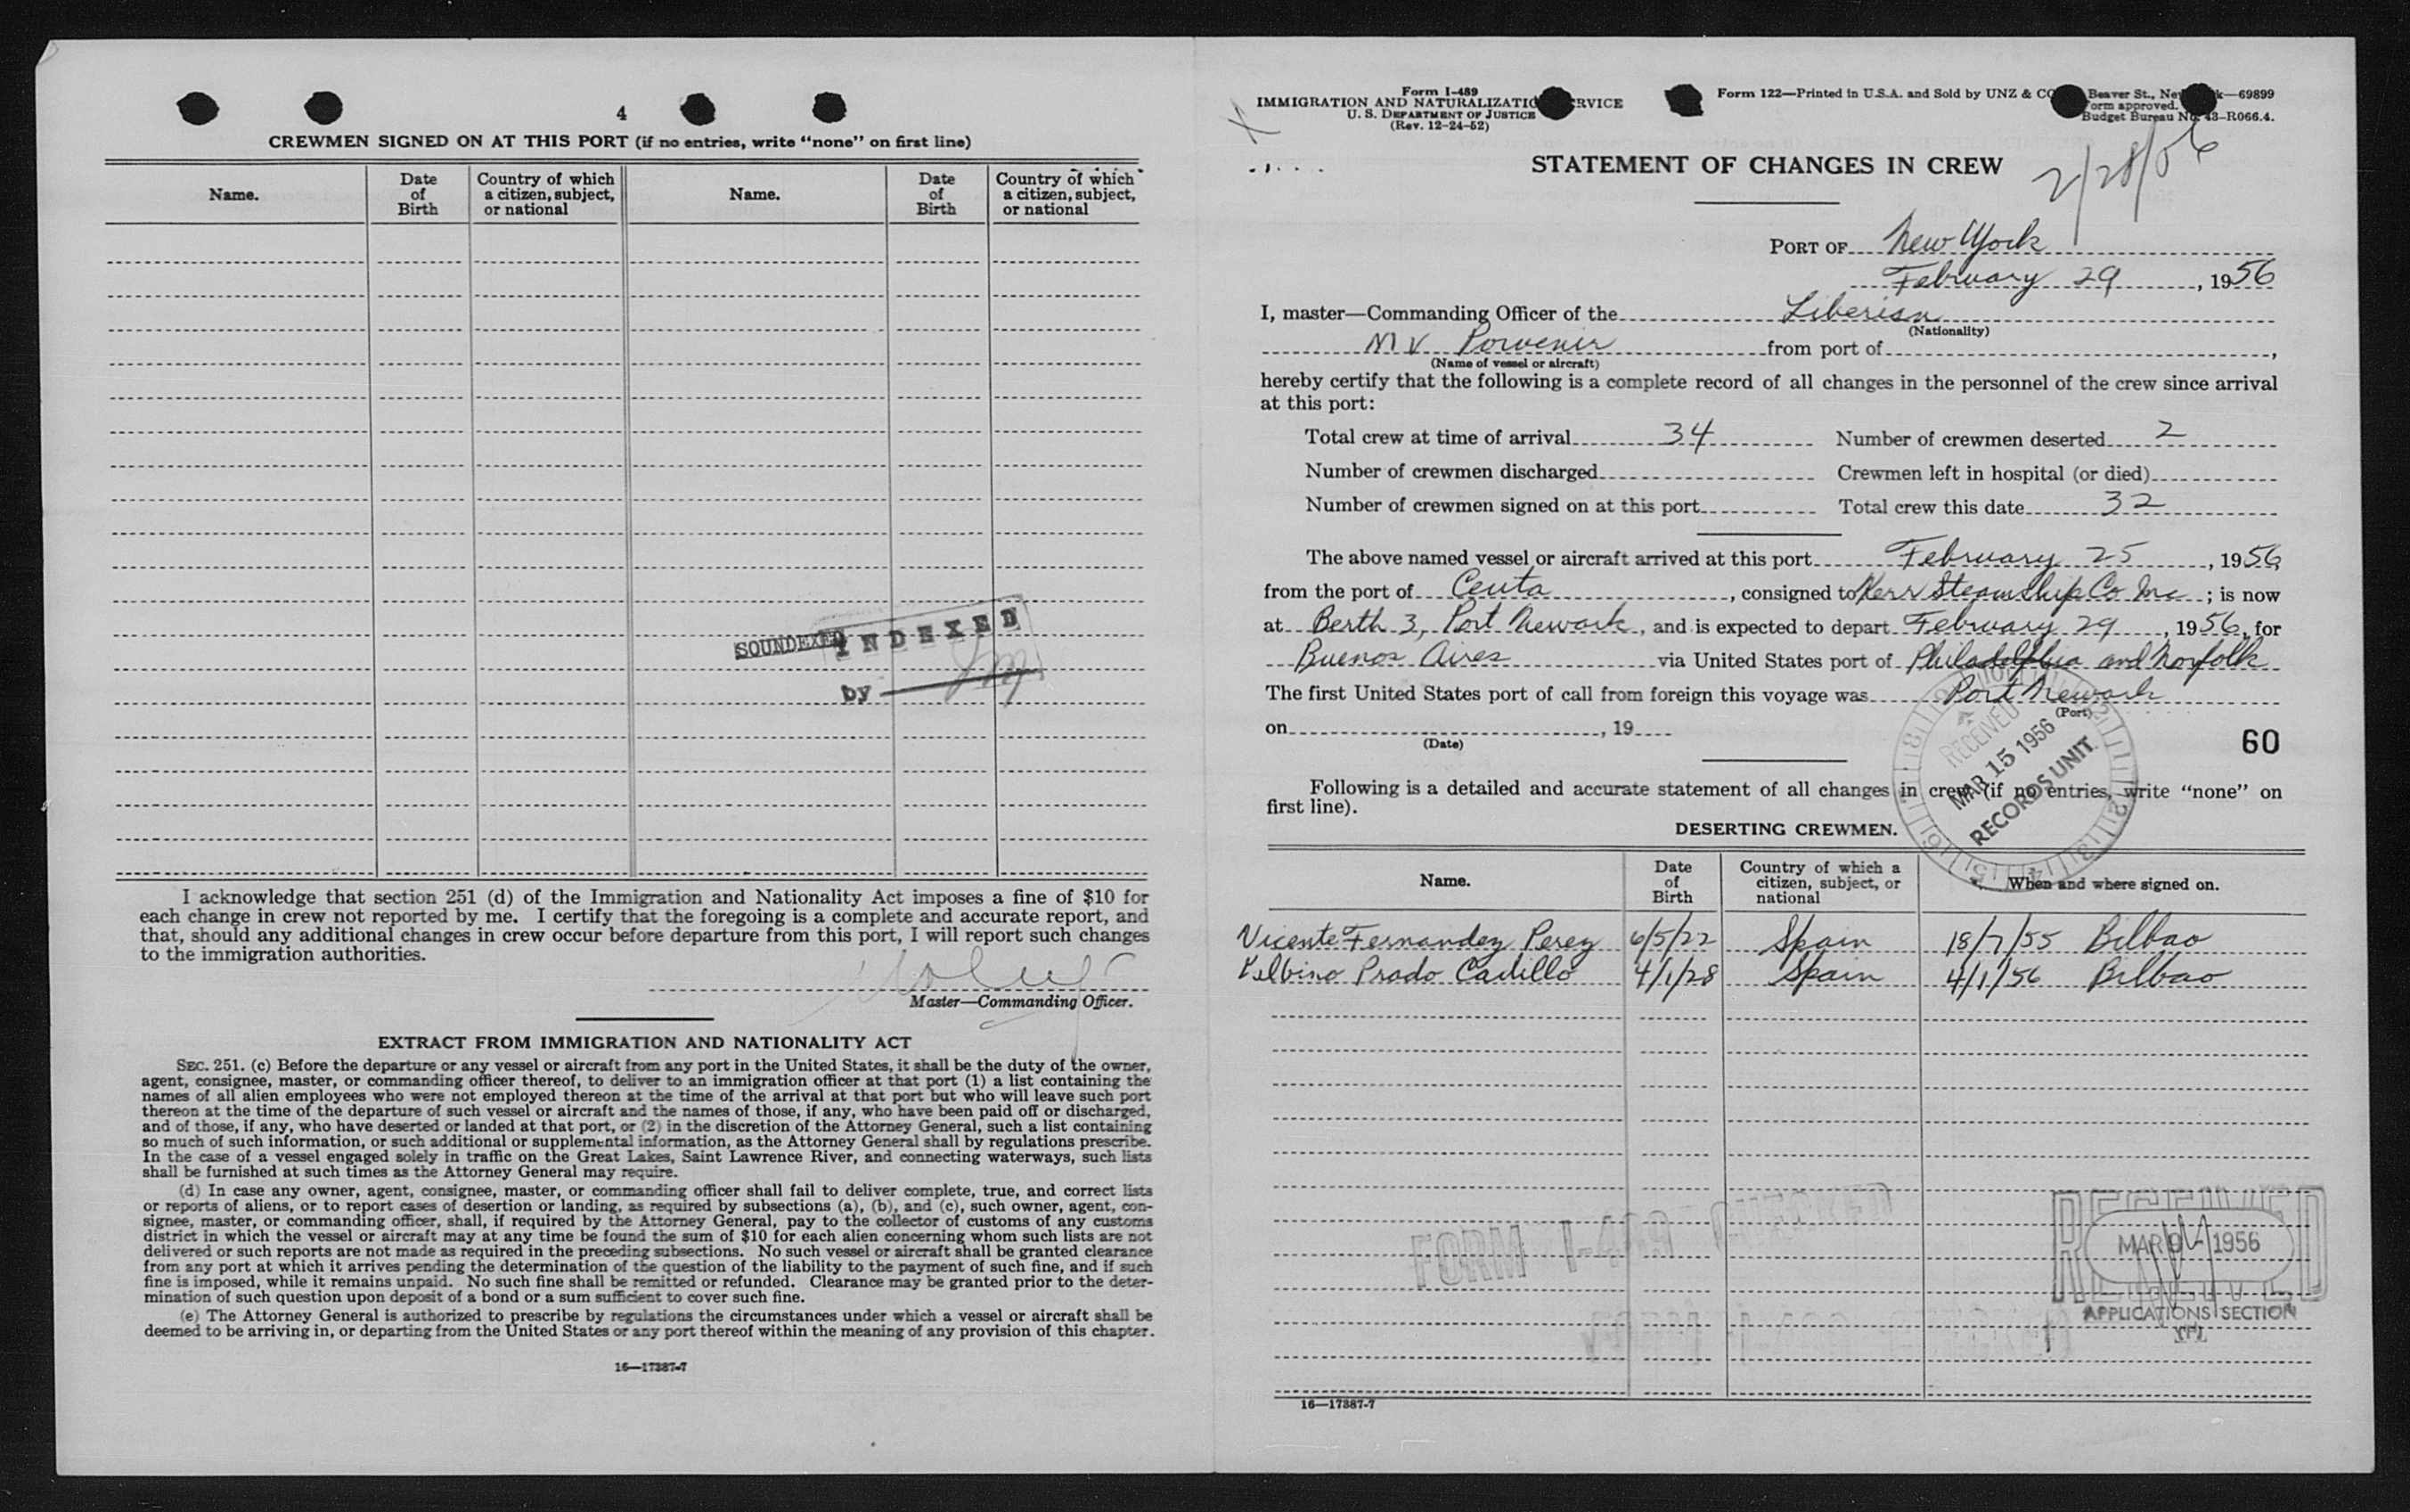 4
CREWMEN SIGNED ON AT THIS PORT (if no entries, write "none" on first line)
Name. Date of Birth Country of which a citizen, subject, or national Name. Date of Birth Country of which a citizen, subject, or national
SOUNDEXED INDEXED
by
I acknowledge that section 251 (d) of the Immigration and Nationality Act imposes a fine of $10 for
each change in crew not reported by me. I certify that the foregoing is a complete and accurate report, and
that, should any additional changes in crew occur before departure from this port, I will report such changes
to the immigration authorities.
Master—Commanding Officer.
EXTRACT FROM IMMIGRATION AND NATIONALITY ACT
SEC. 251. (c) Before the departure or any vessel or aircraft from any port in the United States, it shall be the duty of the owner,
agent, consignee, master, or commanding officer thereof, to deliver to an immigration officer at that port (1) a list containing the
names of all alien employees who were not employed thereon at the time of the arrival at that port but who will leave such port
thereon at the time of the departure of such vessel or aircraft and the names of those, if any, who have been paid off or discharged,
and of those, if any, who have deserted or landed at that port, or (2) in the discretion of the Attorney General, such a list containing
so much of such information, or such additional or supplemental information, as the Attorney General shall by regulations prescribe.
In the case of a vessel engaged solely in traffic on the Great Lakes, Saint Lawrence River, and connecting waterways, such lists
shall be furnished at such times as the Attorney General may require.
(d) In case any owner, agent, consignee, master, or commanding officer shall fail to deliver complete, true, and correct lists
or reports of aliens, or to report cases of desertion or landing, as required by subsections (a), (b), and (c), such owner, agent, con-
signee, master, or commanding officer, shall, if required by the Attorney General, pay to the collector of customs of any customs
district in which the vessel or aircraft may at any time be found the sum of $10 for each alien concerning whom such lists are not
delivered or such reports are not made as required in the preceding subsections. No such vessel or aircraft shall be granted clearance
from any port at which it arrives pending the determination of the question of the liability to the payment of such fine, and if such
fine is imposed, while it remains unpaid. No such fine shall be remitted or refunded. Clearance may be granted prior to the deter-
mination of such question upon deposit of a bond or a sum sufficient to cover such fine.
(e) The Attorney General is authorized to prescribe by regulations the circumstances under which a vessel or aircraft shall be
deemed to be arriving in, or departing from the United States or any port thereof within the meaning of any provision of this chapter.
16—17387-7
Form I-489
IMMIGRATION AND NATURALIZATIO RVICE
U. S. DEPARTMENT OF JUSTICE
(Rev. 12-24-52)
Form 122—Printed in U.S.A. and Sold by UNZ & CO Beaver St., Ne k—69899
orm approved.
Budget Bureau No. 43-R066.4.
STATEMENT OF CHANGES IN CREW
2/28/56
PORT OF New York
February 29, 1956
I, master—Commanding Officer of the Liberian
(Nationality)
MV Porvenir from port of ,
(Name of vessel or aircraft)
hereby certify that the following is a complete record of all changes in the personnel of the crew since arrival
at this port:
Total crew at time of arrival 34 Number of crewmen deserted 2
Number of crewmen discharged Crewmen left in hospital (or died)
Number of crewmen signed on at this port Total crew this date 32
The above named vessel or aircraft arrived at this port February 25, 1956
from the port of Ceuta, consigned to Kerr Steamship Co Inc; is now
at Berth 3, Port Newark, and is expected to depart February 29, 1956, for
Buenos Aires via United States port of Philadelphia and Norfolk
The first United States port of call from foreign this voyage was Port Newark
(Port)
on , 19
(Date)
60
RECEIVED
MAR 15 1956
RECORDS UNIT
Following is a detailed and accurate statement of all changes in crew (if no entries, write "none" on
first line).
DESERTING CREWMEN.
Name. Date of Birth Country of which a citizen, subject, or national When and where signed on.
Vicente Fernandez Perez 6/5/22 Spain 18/7/55 Bilbao
Prado 4/1/28 Spain 4/1/56 Bilbao
FORM I-489
RECEIVED
MAR 9 1956
APPLICATIONS SECTION
16—17387-7